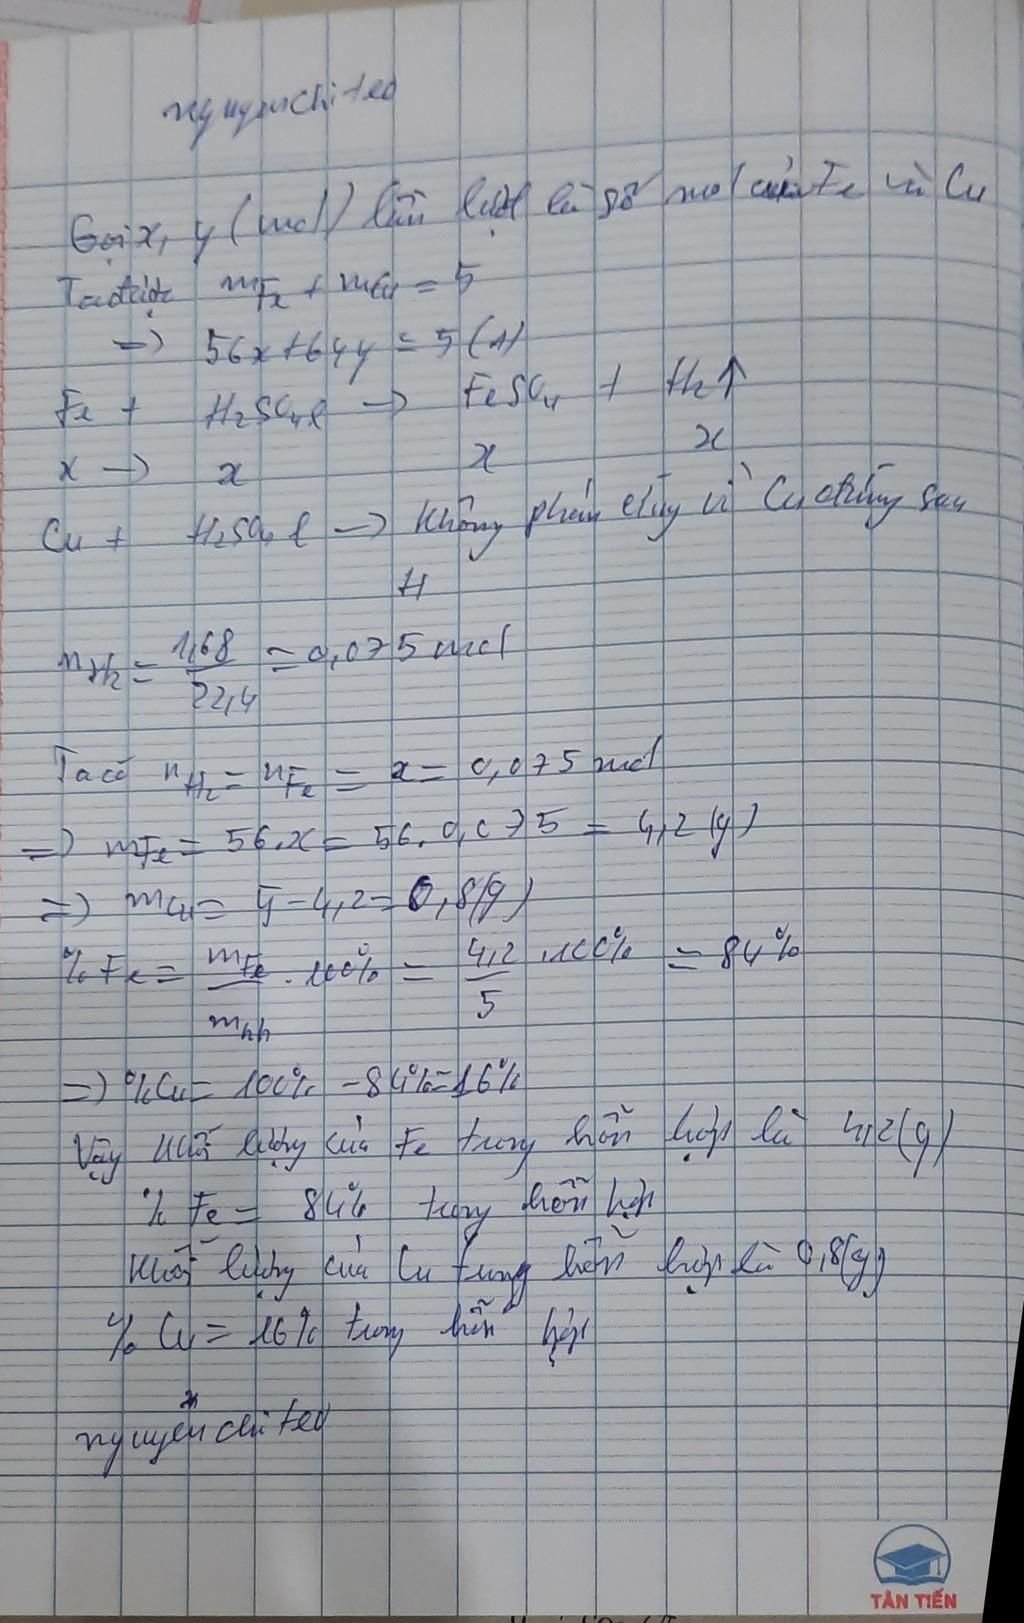 nguyenchiteo
Gọi x, y (mol) lần lượt là số mol của Fe và Cu
Ta được mFe + mCu = 5
=> 56x + 64y = 5 (1)
Fe + H₂SO₄ l → FeSO₄ + H₂↑
x → x x x
Cu + H₂SO₄ l → không phản ứng vì Cu đứng sau
H
nH₂ = 1,68/22,4 = 0,075 mol
Ta có nH₂ = nFe = x = 0,075 mol
=> mFe = 56.x = 56.0,075 = 4,2 (g)
=> mCu = 5 - 4,2 = 0,8 (g)
% Fe = mFe/mhh . 100% = 4,2/5 .100% = 84%
=> %Cu = 100% - 84% = 16%
Vậy khối lượng của Fe trong hỗn hợp là 4,2 (g)
% Fe = 84% trong hỗn hợp
khối lượng của Cu trong hỗn hợp là 0,8 (g)
% Cu = 16% trong hỗn hợp
nguyễn chi teo
TÂN TIẾN